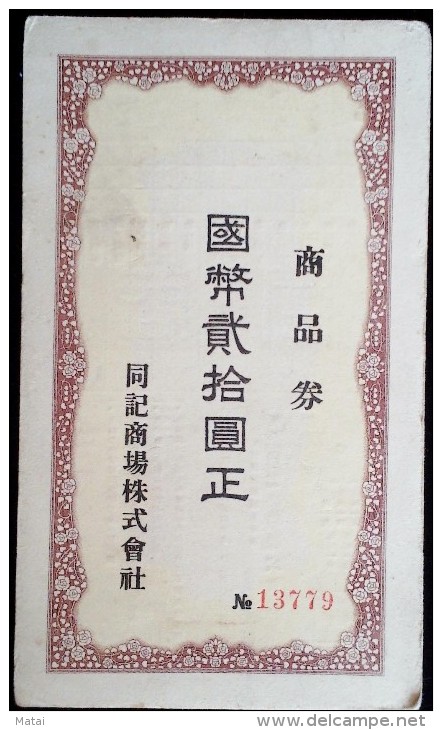 商品券
國幣貳拾圓正
同記商場株式會社
№ 13779
Matai
delcampe.net